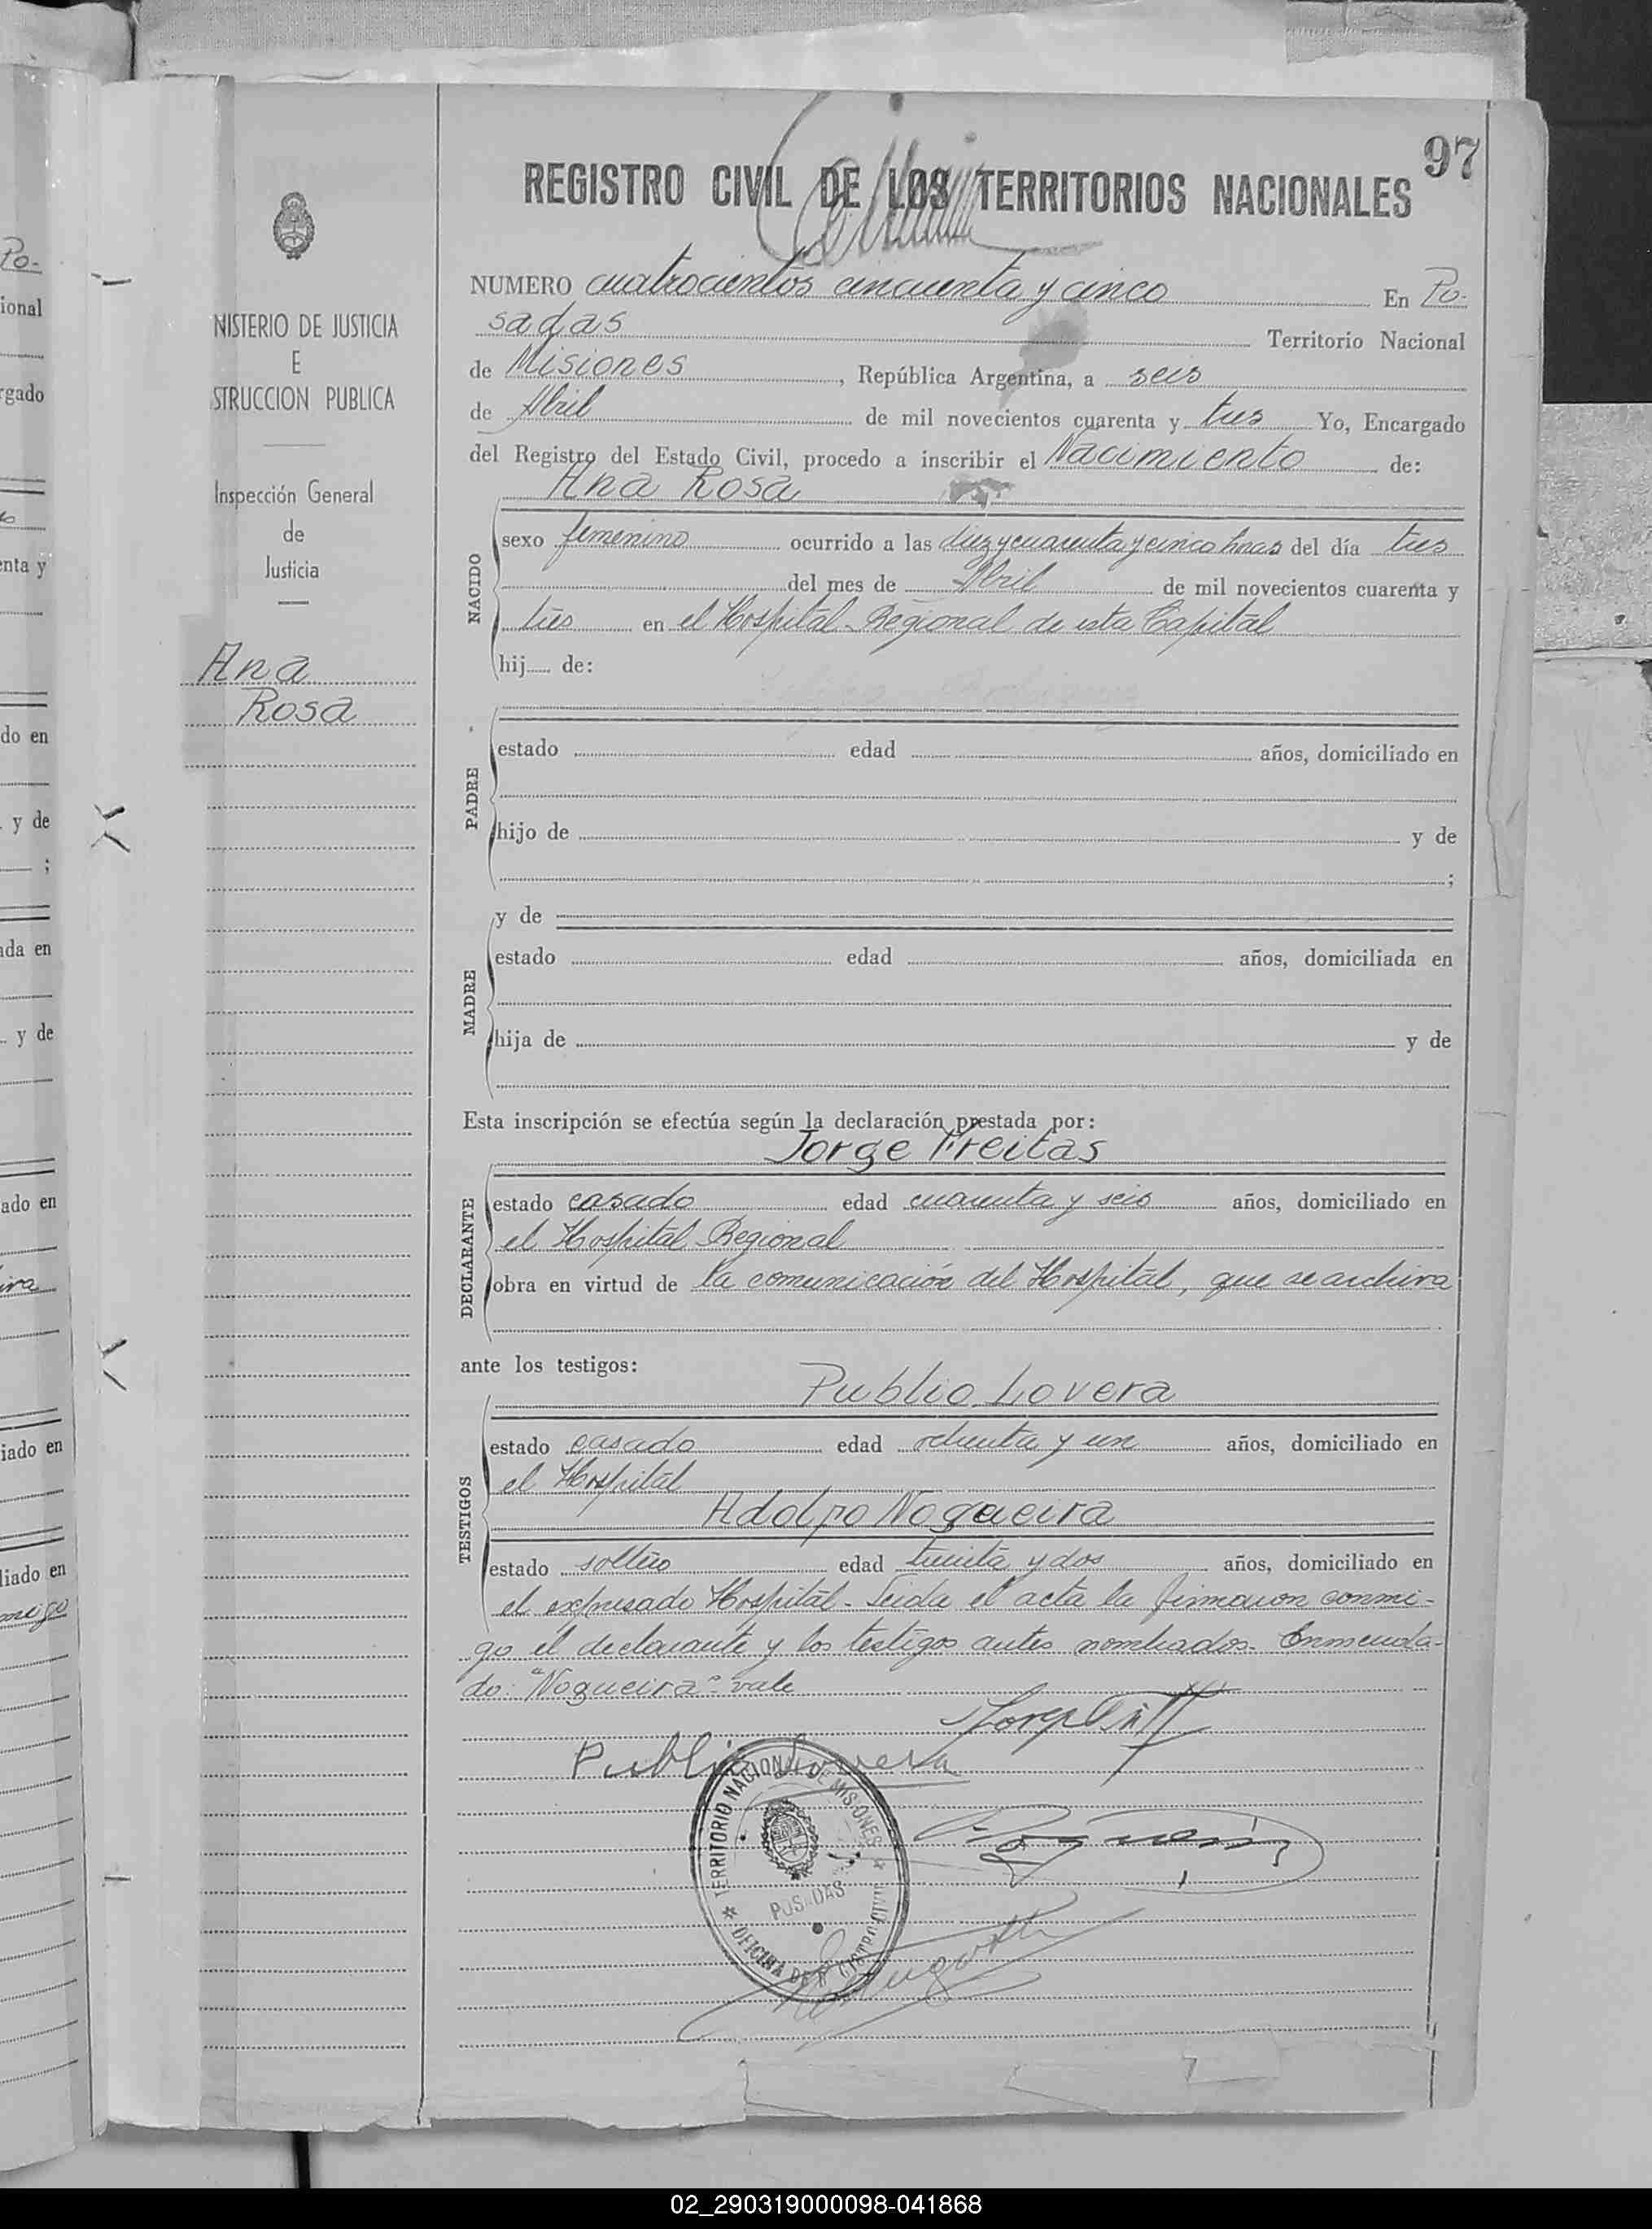 97
REGISTRO CIVIL DE LOS TERRITORIOS NACIONALES
NUMERO cuatrocientos cincuenta y cinco En Po-
sadas Territorio Nacional
de Misiones, República Argentina, a seis
de Abril de mil novecientos cuarenta y tres Yo, Encargado
del Registro del Estado Civil, procedo a inscribir el Nacimiento de:
Ana Rosa
NACIDO
sexo femenino ocurrido a las diez y cuarenta y cinco horas del día tres
del mes de Abril de mil novecientos cuarenta y
tres en el Hospital Regional de esta Capital
hij de:
PADRE
estado edad años, domiciliado en
hijo de y de
;
MADRE
y de
estado edad años, domiciliada en
hija de y de
Esta inscripción se efectúa según la declaración prestada por:
Jorge Freitas
DECLARANTE
estado casado edad cuarenta y seis años, domiciliado en
el Hospital Regional
obra en virtud de la comunicación del Hospital, que se archiva
ante los testigos:
Publio Lovera
TESTIGOS
estado casado edad ochenta y un años, domiciliado en
el Hospital
Adolfo Nogueira
estado soltero edad treinta y dos años, domiciliado en
el expresado Hospital - Leida el acta la firmaron conmi-
go el declarante y los testigos antes nombrados - Enmenda-
do: "Nogueira" - vale
Publio Lovera
TERRITORIO NACIONAL DE MISIONES
POSADAS
OFICINA DE REGISTRO CIVIL
NISTERIO DE JUSTICIA
E
STRUCCION PUBLICA
Inspección General
de
Justicia
Ana
Rosa
Po-
ional
rgado
enta y
do en
y de
;
ada en
y de
ado en
iado en
liado en
migo
02_290319000098-041868